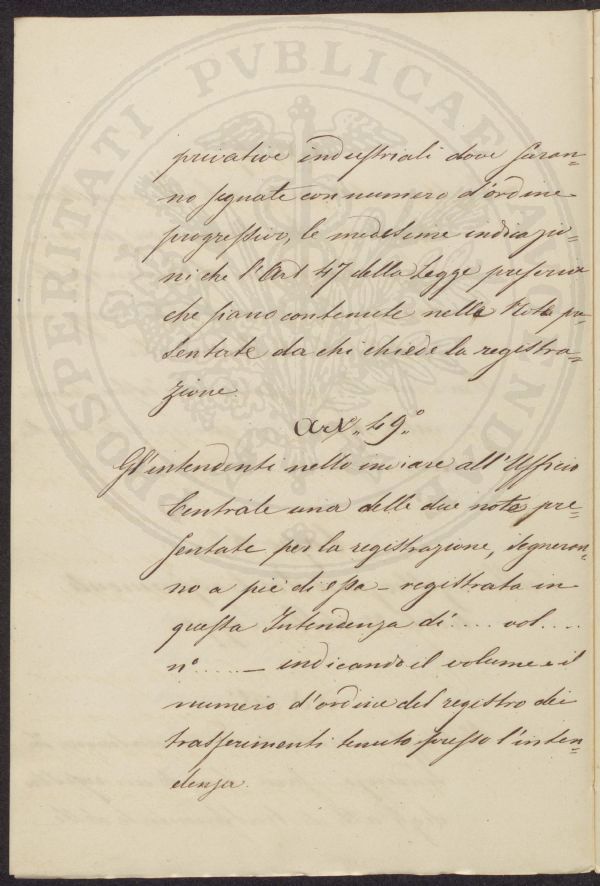 PROSPERITATI PVBLICAE AVGENDAE
privative industriali dove saran=
no segnate con numero d'ordine
progressivo, le medesime indicazio=
ni che l'Art 47 della Legge prescrive
che siano contenute nelle Note pre=
sentate da chi chiede la registra=
zione.
Art. 49.°
Gl'intendenti nello inviare all'Ufficio
Centrale una delle due note pre=
sentate per la registrazione, segneran=
no a piè di essa — registrata in
questa Intendenza di .... vol. ...
n° ..... — indicando il volume e il
numero d'ordine del registro dei
trasferimenti tenuto presso l'inten=
denza.